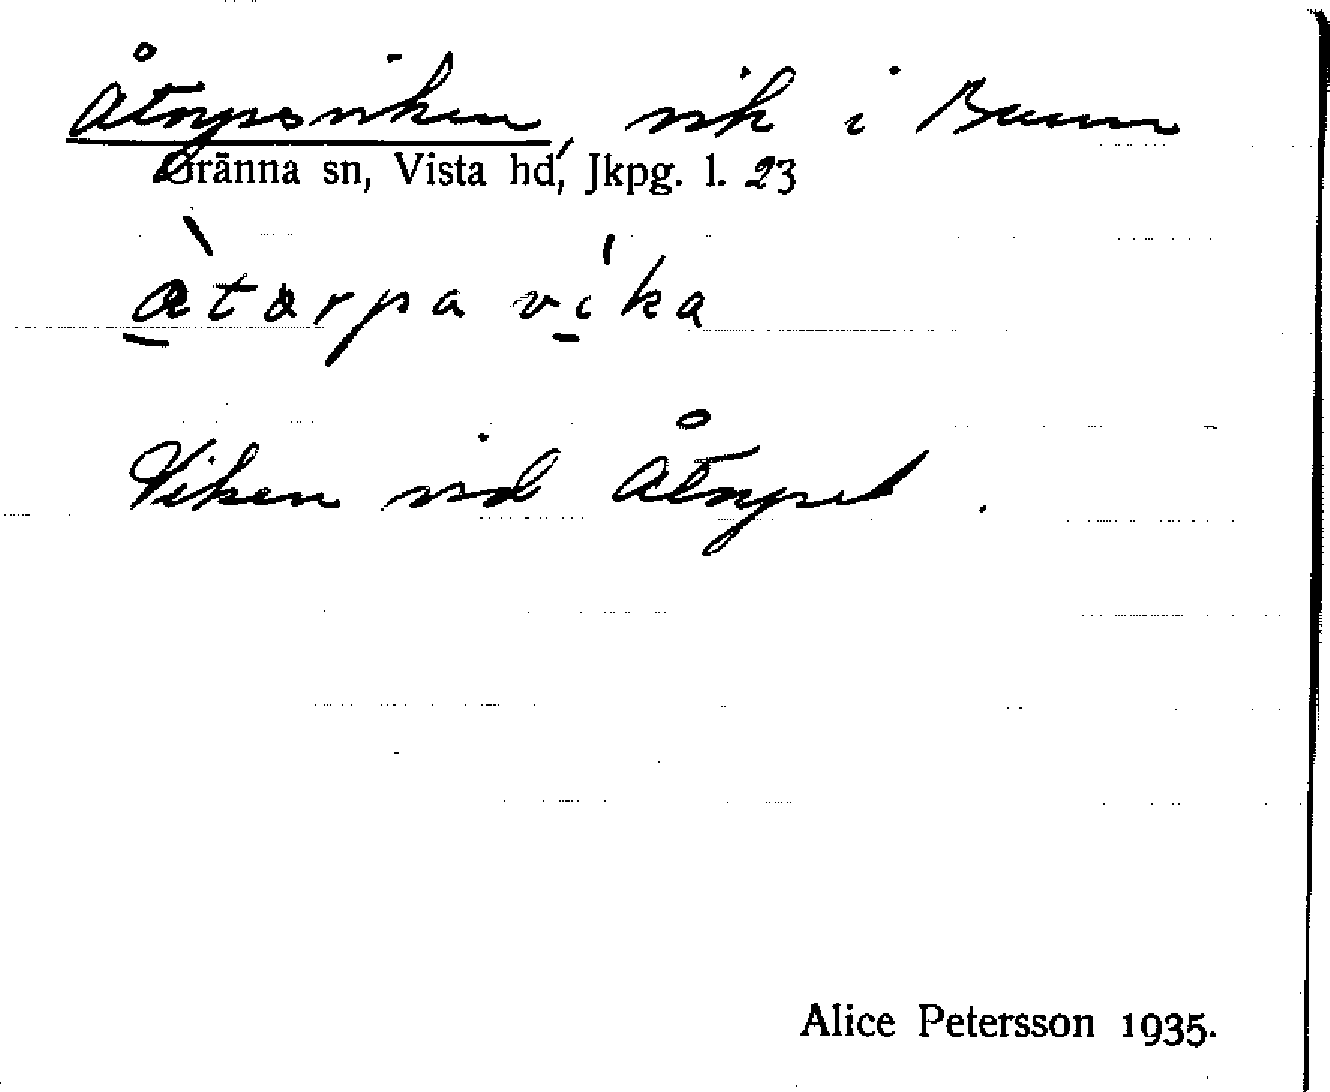 Åtorpsviken, vik i Bunn
Gränna sn, Vista hd, Jkpg. l. 23
åtorpa vika
Viken vid Åtorpet.
Alice Petersson 1935.